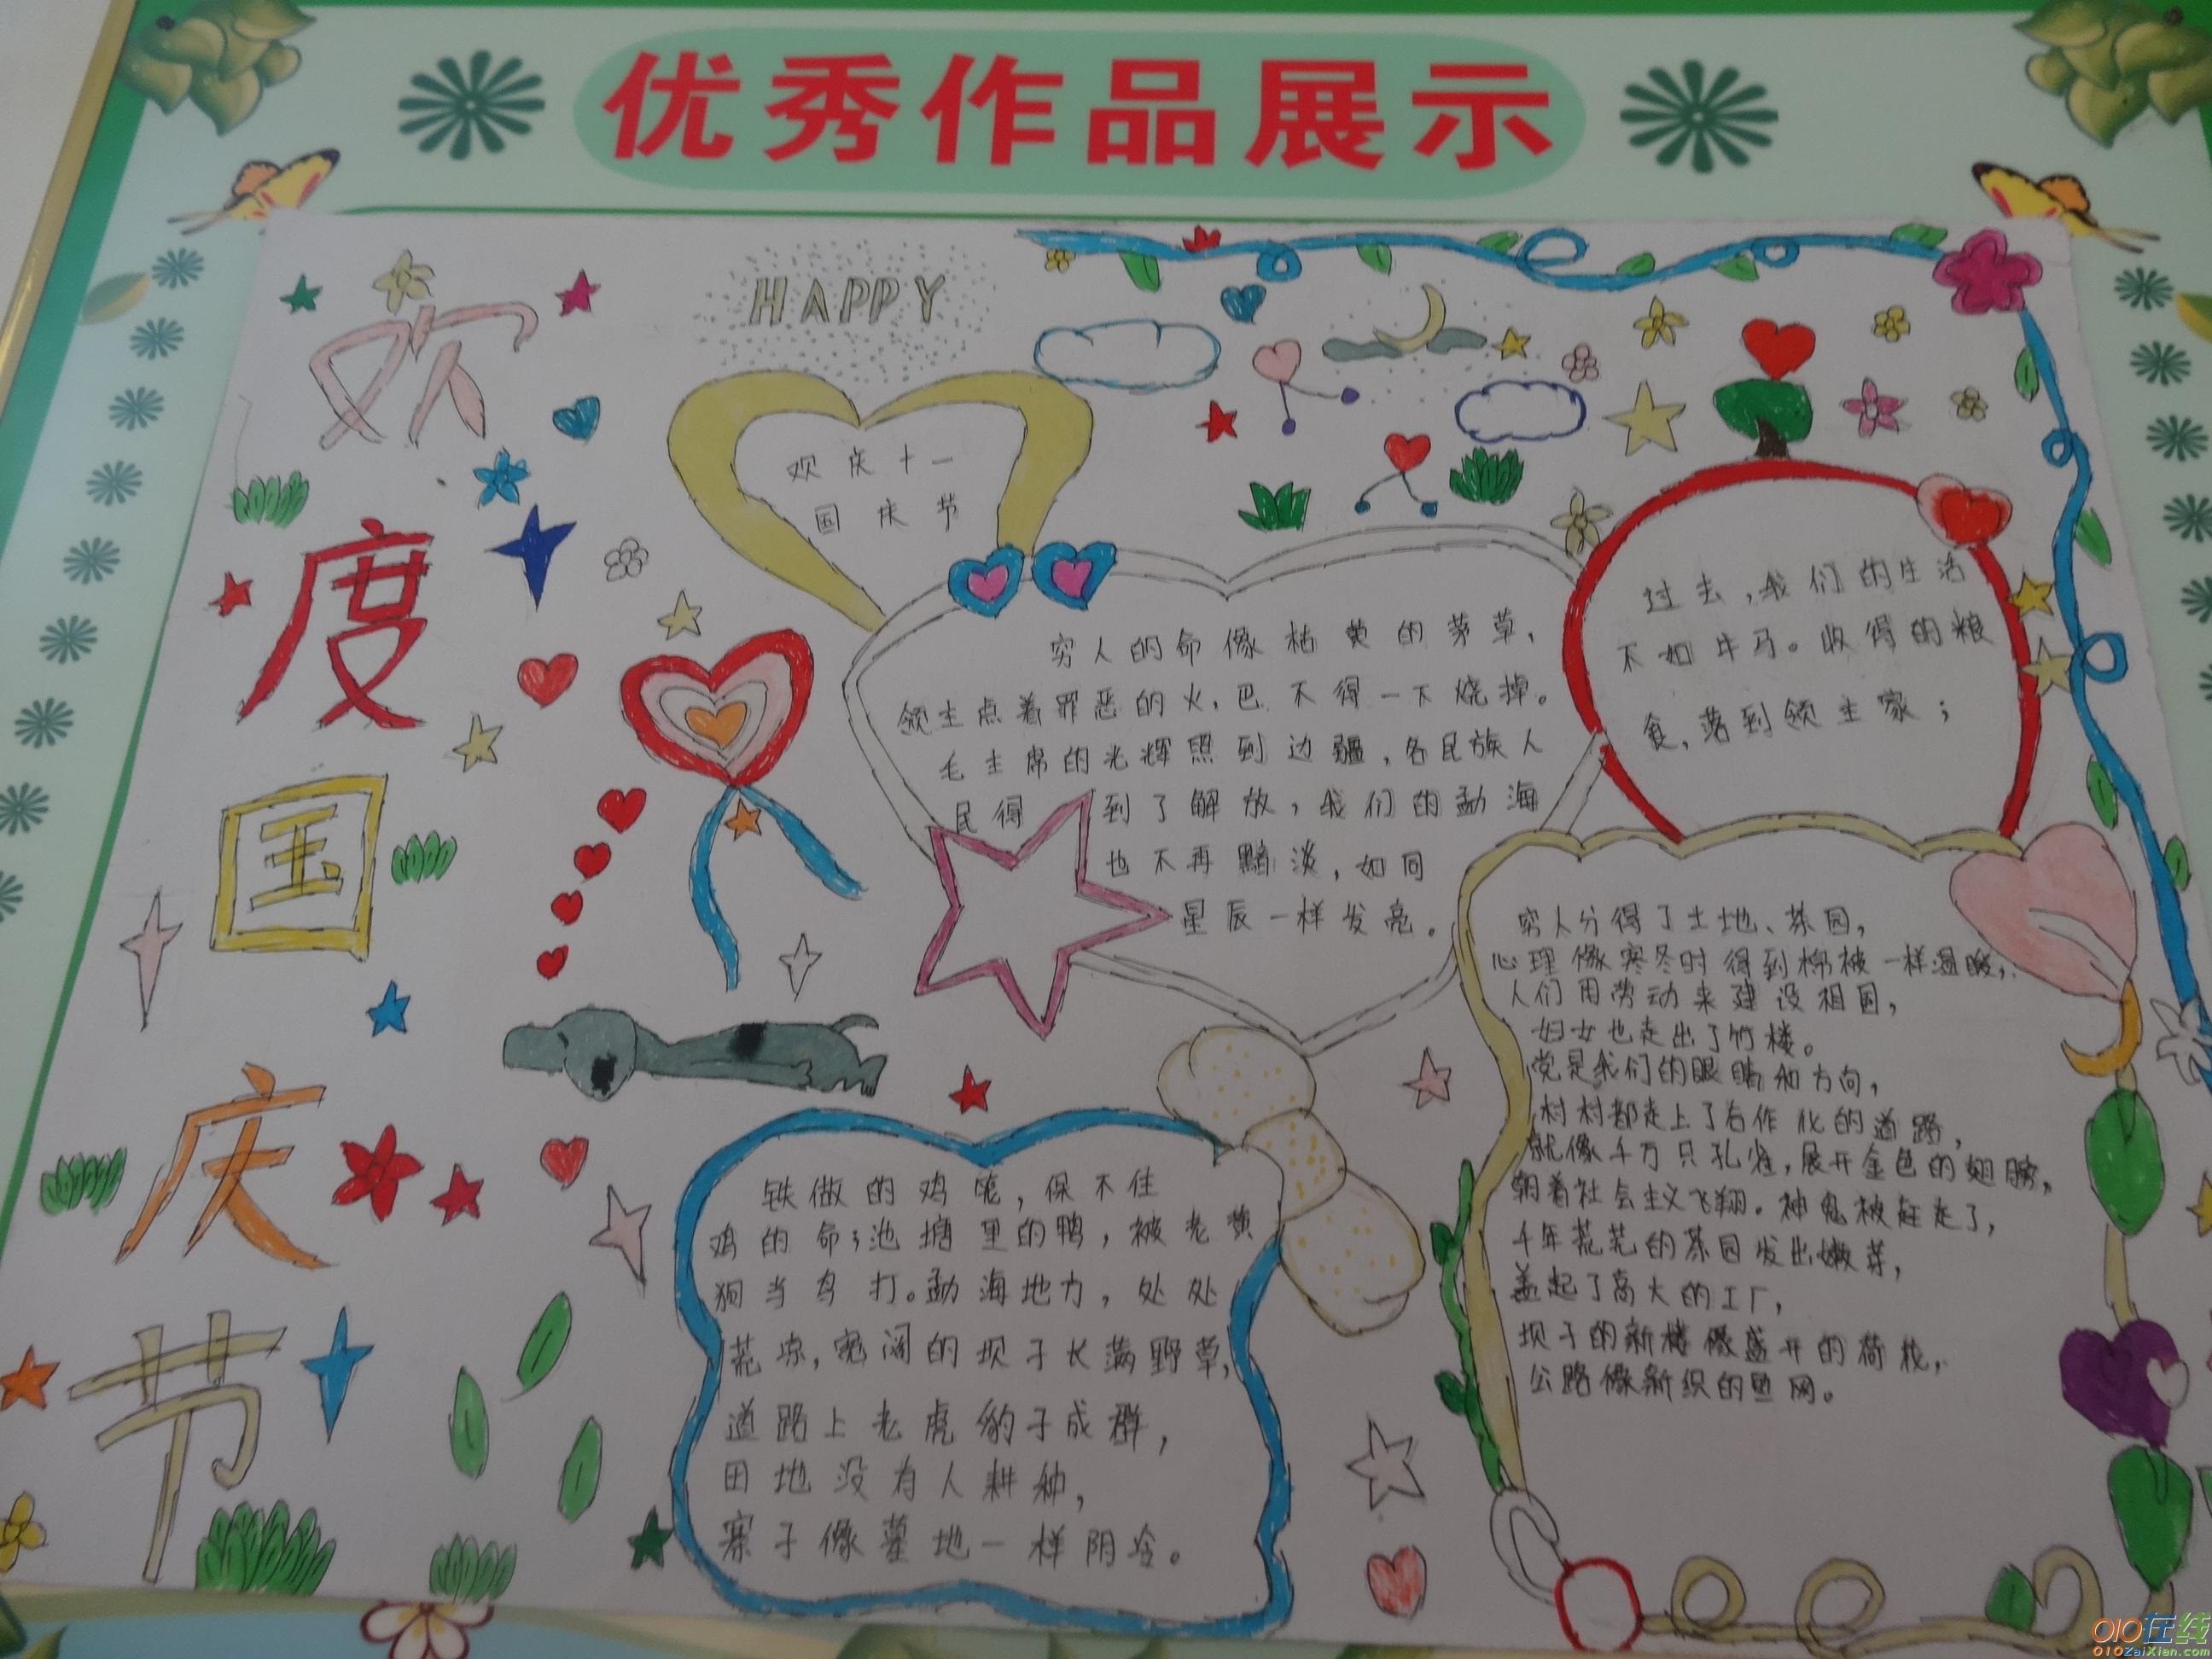 优秀作品展示
欢度国庆节
HAPPY
欢庆十一
国庆节
过去,我们的生活
不如牛马。收得的粮
食,落到领主家;
穷人的命像枯黄的茅草,
领主点着罪恶的火,巴不得一下烧掉。
毛主席的光辉照到边疆,各民族人
民得到了解放,我们的勐海
也不再黯淡,如同
星辰一样发亮。
铁做的鸡笼,保不住
鸡的命;池塘里的鸭,被老黄
狗当鸟打。勐海地力,处处
荒凉,宽阔的坝子长满野草,
道路上老虎豹子成群,
田地没有人耕种,
寨子像墓地一样阴冷。
穷人分得了土地、茶园,
心理像寒冬时得到棉被一样温暖,
人们用劳动来建设祖国,
妇女也走出了竹楼。
党是我们的眼睛和方向,
村村都走上了合作化的道路,
就像千万只孔雀,展开金色的翅膀,
朝着社会主义飞翔。神鬼被赶走了,
千年荒芜的茶园发出嫩芽,
盖起了高大的工厂,
坝子的新楼像盛开的荷花,
公路像新织的鱼网。
010在线
010ZaiXian.com